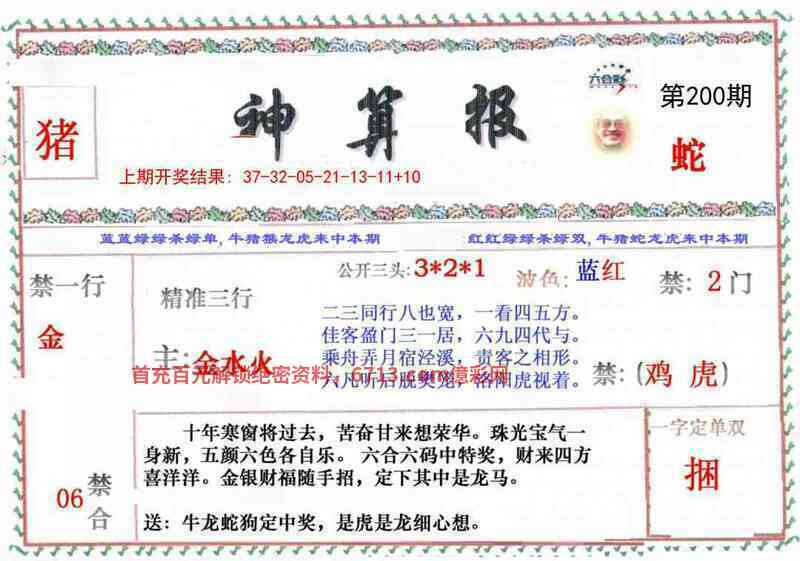 六合彩
第200期
猪
神算报
蛇
上期开奖结果: 37-32-05-21-13-11+10
蓝蓝绿绿杀绿单,牛猪猴龙虎来中本期
红红绿绿杀绿双,牛猪蛇龙虎来中本期
禁一行
金
精准三行
主:金水火
公开三头:3*2*1
波色:蓝红
禁: 2门
二三同行八也宽，一看四五方。
佳客盈门三一居，六九四代与。
乘舟弄月宿泾溪，责客之相形。
六凡听后脱樊笼，洛刚虎视着。
首充百元解锁绝密资料，6713.com億彩网
禁:(鸡 虎)
十年寒窗将过去，苦奋甘来想荣华。珠光宝气一
身新，五颜六色各自乐。 六合六码中特奖，财来四方
喜洋洋。金银财福随手招，定下其中是龙马。
送：牛龙蛇狗定中奖，是虎是龙细心想。
06
禁合
一字定单双
捆